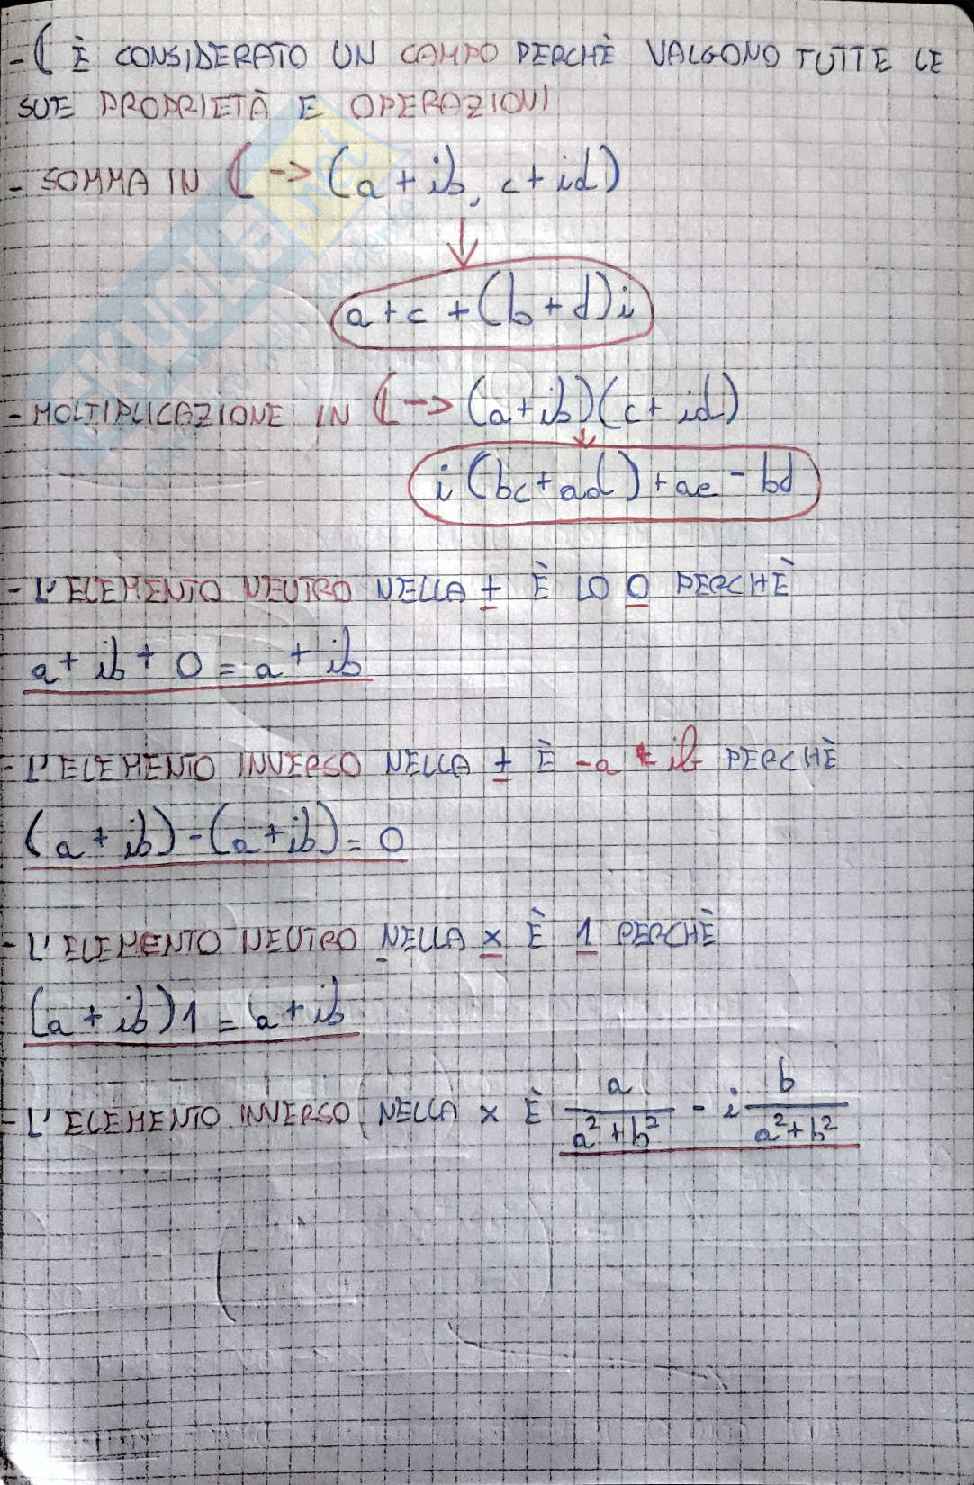 - ℂ È CONSIDERATO UN CAMPO PERCHÈ VALGONO TUTTE LE
SUE PROPRIETÀ E OPERAZIONI
- SOMMA IN ℂ -> (a + ib, c + id)
a + c + (b + d) i
- MOLTIPLICAZIONE IN ℂ -> (a + ib)(c + id)
i (bc + ad) + ac - bd
- L'ELEMENTO NEUTRO NELLA + È LO 0 PERCHÈ
a + ib + 0 = a + ib
- L'ELEMENTO INVERSO NELLA + È -a ib PERCHÈ
(a + ib) - (a + ib) = 0
- L'ELEMENTO NEUTRO NELLA x È 1 PERCHÈ
(a + ib) 1 = a + ib
- L'ELEMENTO INVERSO NELLA x È a/(a² + b²) - i b/(a² + b²)